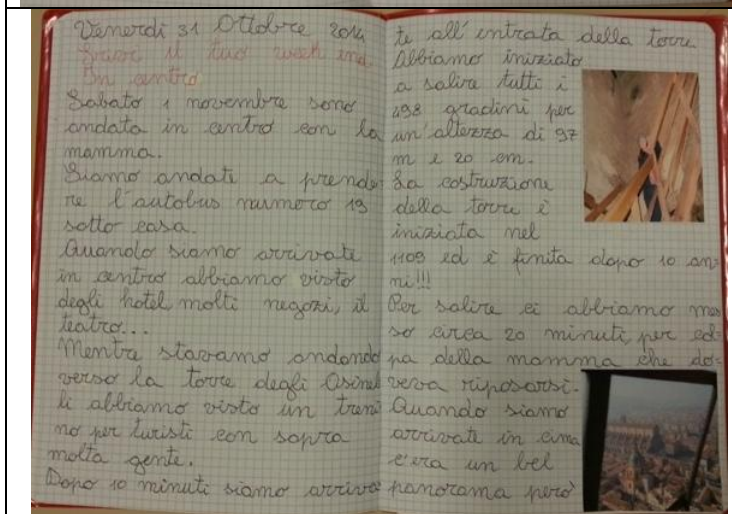 Venerdì 31 Ottobre 2014
Scrivi il tuo week end
In centro
Sabato 1 novembre sono
andata in centro con la
mamma.
Siamo andati a prende-
re l'autobus numero 19
sotto casa.
Quando siamo arrivate
in centro abbiamo visto
degli hotel, molti negozi, il
teatro...
Mentre stavamo andando
verso la torre degli Asinel
li abbiamo visto un treni
no per turisti con sopra
molta gente.
Dopo 10 minuti siamo arriva
te all'entrata della torre.
Abbiamo iniziato
a salire tutti i
498 gradini per
un'altezza di 97
m e 20 cm.
La costruzione
della torre è
iniziata nel
1109 ed è finita dopo 10 an=
ni!!!
Per salire ci abbiamo mes
so circa 20 minuti, per col=
pa della mamma che do=
veva riposarsi.
Quando siamo
arrivate in cima
c'era un bel
panorama però